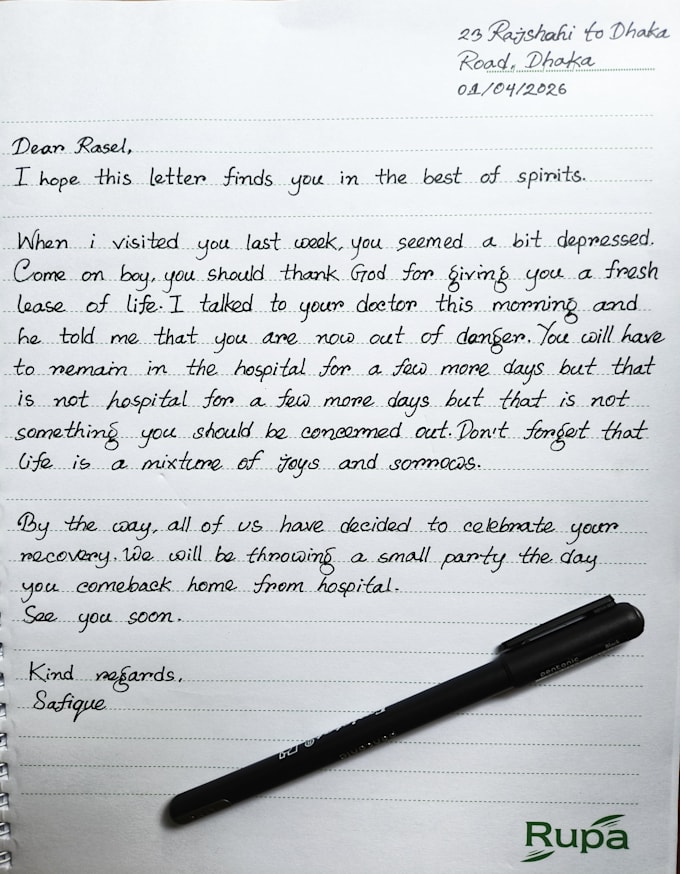 23 Rajshahi to Dhaka
Road, Dhaka
01/04/2026
Dear Rasel,
I hope this letter finds you in the best of spirits.
When i visited you last week, you seemed a bit depressed.
Come on boy, you should thank God for giving you a fresh
lease of life. I talked to your doctor this morning and
he told me that you are now out of danger. You will have
to remain in the hospital for a few more days but that
is not hospital for a few more days but that is not
something you should be concerned out. Don't forget that
life is a mixture of joys and sorrows.
By the way, all of us have decided to celebrate your
recovery. We will be throwing a small party the day
you comeback home from hospital.
See you soon.
Kind regards,
Safique
pentonic
Rupa